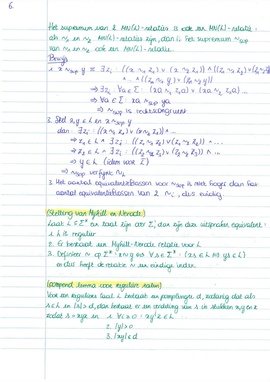 6.
Het supremum van 2 MN(L)-relaties is ook een MN(L)-relatie:
als ~₁ en ~₂ MN(L)-relaties zijn, dan is het supremum ~sup
van ~₁ en ~₂ ook een MN(L)-relatie.
Bewijs
1. x ~sup y ≡ ∃ zᵢ : ((x ~₁ z₀) ∨ (x ~₂ z₀)) ∧ ((z₀ ~₁ z₁) ∨ (z₀ ~₂ z₁))
∧ ... ∧ ((zₙ ~₁ y) ∨ (zₙ ~₂ y))
⇒ ∃ zᵢ : ∀a ∈ Σ : (xa ~₁ z₀a) ∨ (xa ~₂ z₀a) ...
⇒ ∀a ∈ Σ : xa ~sup ya
⇒ ~sup is rechtscongruent
2. Stel x ∈ L en x ~sup y
dan : ∃ zᵢ : ((x ~₁ z₀) ∨ (x ~₂ z₀)) ∧ ...
⇒ z₀ ∈ L ∧ ∃ zᵢ : ((z₀ ~₁ z₁) ∨ (z₀ ~₂ z₁)) ∧ ...
⇒ z₁ ∈ L ∧ ∃ zᵢ : ((z₁ ~₁ z₂) ∨ (z₁ ~₂ z₂)) ∧ ...
⇒ y ∈ L (idem voor L̄)
⇒ ~sup verfijnt ~L
3. Het aantal equivalentieklassen voor ~sup is niet hoger dan het
aantal equivalentieklassen van 2 ~ᵢ, dus eindig
(Stelling van Myhill en Nerode)
Laat L ⊆ Σ* een taal zijn over Σ, dan zijn deze uitspraken equivalent:
1. L is regulier
2. Er bestaat een Myhill-Nerode relatie voor L
3. Definieer ~ op Σ* : x ~ y ⇔ ∀s ∈ Σ* : (xs ∈ L ⇔ ys ∈ L)
en dus heeft de relatie ~ een eindige index.
(pompend lemma voor reguliere talen)
Voor een reguliere taal L bestaat een pomplengte d, zodanig dat als
s ∈ L en |s| ≥ d, dan bestaat er een verdeling van s in stukken x, y en z
zodat s = xyz en 1. ∀i ≥ 0 : xyⁱz ∈ L
2. |y| > 0
3. |xy| ≤ d